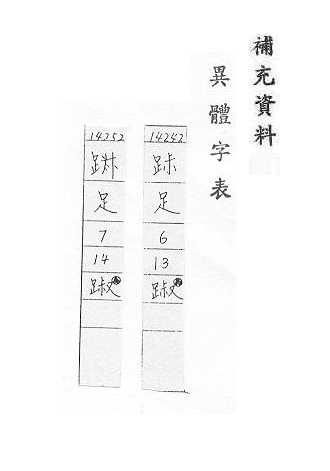 補充資料
異體字表
14242
足
6
13
踧
14252
足
7
14
踧